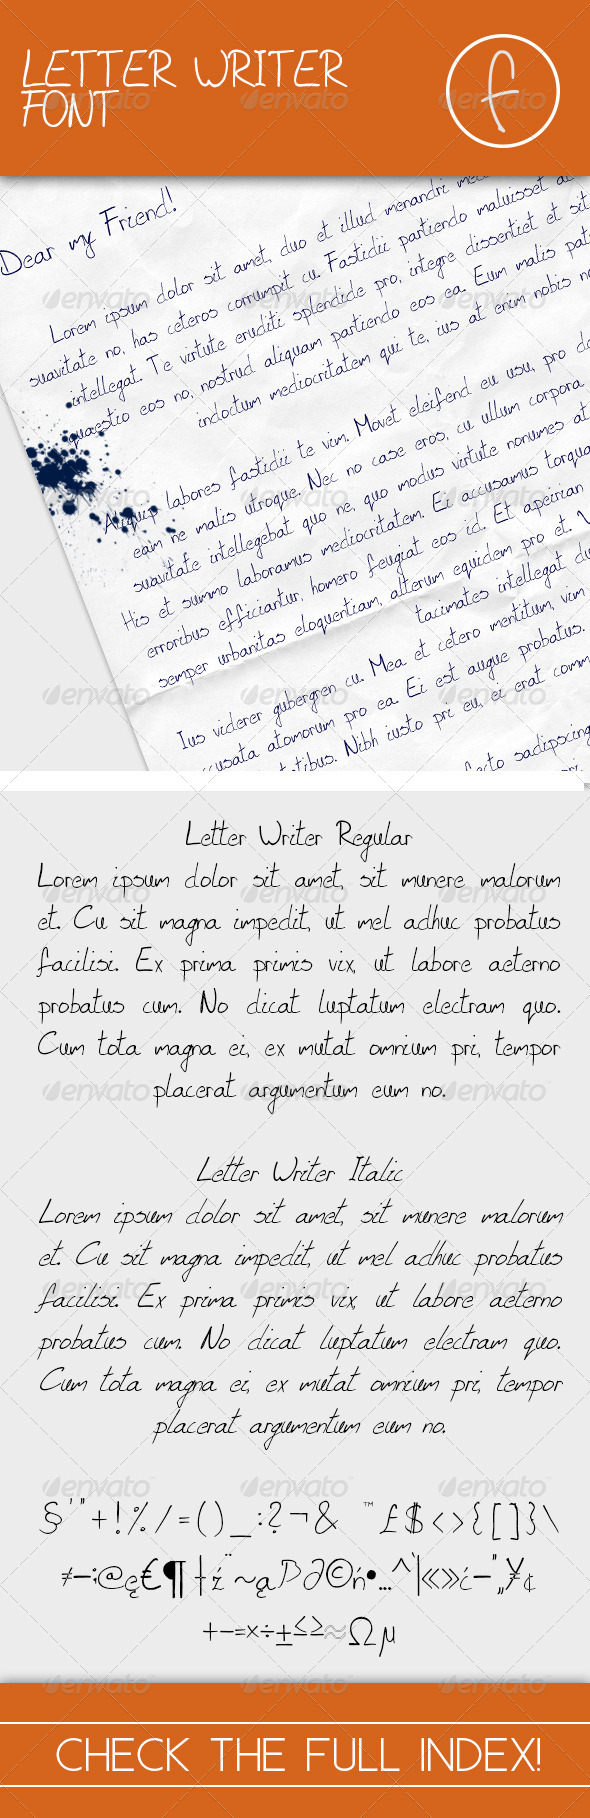 LETTER WRITER
FONT
f
Dear my Friend!
Lorem ipsum dolor sit amet, duo et illud menandri
suavitate no, has ceteros corrumpit cu. Fastidii partiendo maluisset
intellegat. Te virtute eruditi splendide pro, integre dissentiet et sit
quaestio eos no, nostrud aliquam partiendo eos ea. Eum malis
indoctum mediocritatem qui te, ius at enim nobis
Aliquip labores fastidii te vim. Movet eleifend eu usu, pro
eam ne malis utroque. Nec no case eros, cu ullum corpora
suavitate intellegebat quo ne, quo modus virtute nonumes at
His et summo laboramus mediocritatem. Ei accusamus
erroribus efficiantur, homero feugiat eos id. Et apeirian
semper urbanitas eloquentiam, alterum equidem pro et.
tacimates intellegat
Ius viderer gubergren cu. Mea et cetero mentitum, vim
atomorum pro ea. Ei est augue probatus.
Nibh iusto pri eu, ei erat
sadipscing
Letter Writer Regular
Lorem ipsum dolor sit amet, sit munere malorum
et. Cu sit magna impedit, ut mel adhuc probatus
facilisi. Ex prima primis vix, ut labore aeterno
probatus cum. No dicat luptatum electram quo.
Cum tota magna ei, ex mutat omnium pri, tempor
placerat argumentum eum no.
Letter Writer Italic
Lorem ipsum dolor sit amet, sit munere malorum
et. Cu sit magna impedit, ut mel adhuc probatus
facilisi. Ex prima primis vix, ut labore aeterno
probatus cum. No dicat luptatum electram quo.
Cum tota magna ei, ex mutat omnium pri, tempor
placerat argumentum eum no.
§'"+!%/=()_:?¬& ™£$<>{[]}\
≠–;@ę€¶†ź¨~ąƊ∂©ń•…^`|«»ć—"„¥¢
+−=×÷±≤≥≈Ωµ
CHECK THE FULL INDEX!